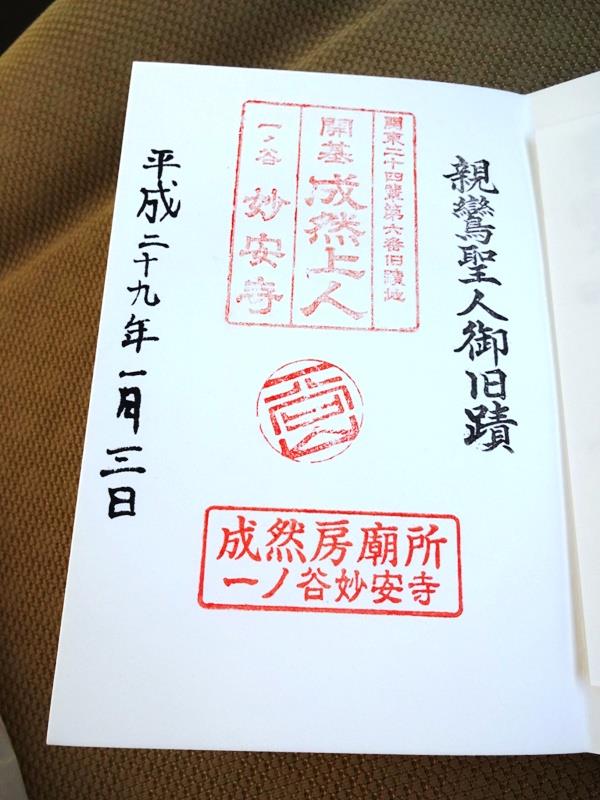 親鸞聖人御旧蹟
関東二十四輩第六番旧蹟地
開基 成然上人
一ノ谷 妙安寺
成然房廟所
一ノ谷妙安寺
平成二十九年一月三日